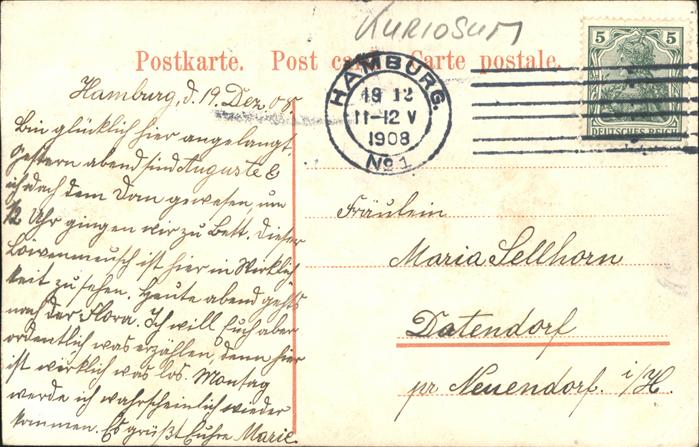 KURIOSUM
Postkarte. Post carte. Carte postale.
HAMBURG.
19 12
11-12 V
1908
No 1
5 5
DEUTSCHES REICH
Hamburg, d. 19 Dez 08.
Bin glücklich hier angelangt.
Gestern abend sind Auguste &
ich nach dem Dom gewesen um
12 Uhr gingen wir zu Bett. Dieser
Löwenmensch ist hier in Wirklich
keit zu sehen. Heute abend gehts
nach der Flora. Ich will Euch aber
ordentlich was erzählen, denn hier
ist wirklich was los. Montag
werde ich wahrscheinlich wieder
kommen. Es grüßt Euch Marie
Fräulein
Maria Sellhorn
Datendorf
pr Neuendorf. i/H.